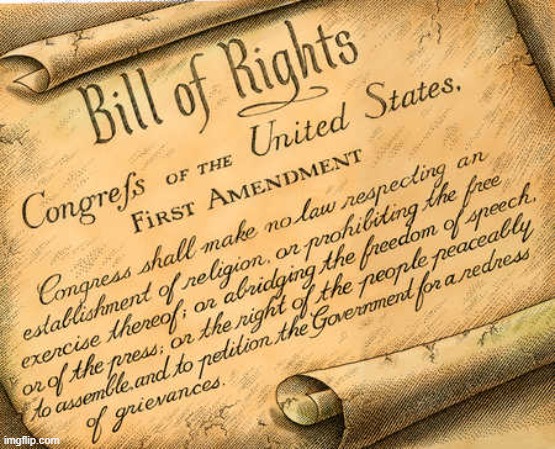 Bill of Rights
Congreſs OF THE United States,
FIRST AMENDMENT
Congress shall make no law respecting an
establishment of religion, or prohibiting the free
exercise thereof; or abridging the freedom of speech,
or of the press; or the right of the people peaceably
to assemble, and to petition the Government for a redress
of grievances.
imgflip.com